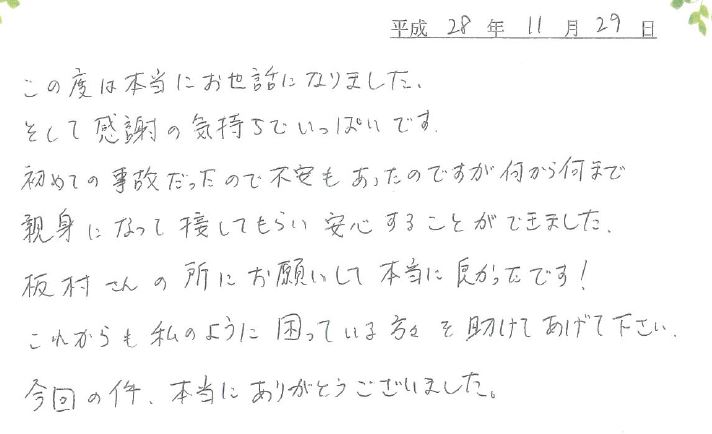 平成 28 年 11 月 29 日
この度は本当にお世話になりました、
そして感謝の気持ちでいっぱいです.
初めての事故だったので不安もあったのですが何から何まで
親身になって接してもらい安心することができました、
板村さんの所にお願いして本当に良かったです!
これからも私のように困っている方々を助けてあげて下さい、
今回の件、本当にありがとうございました。